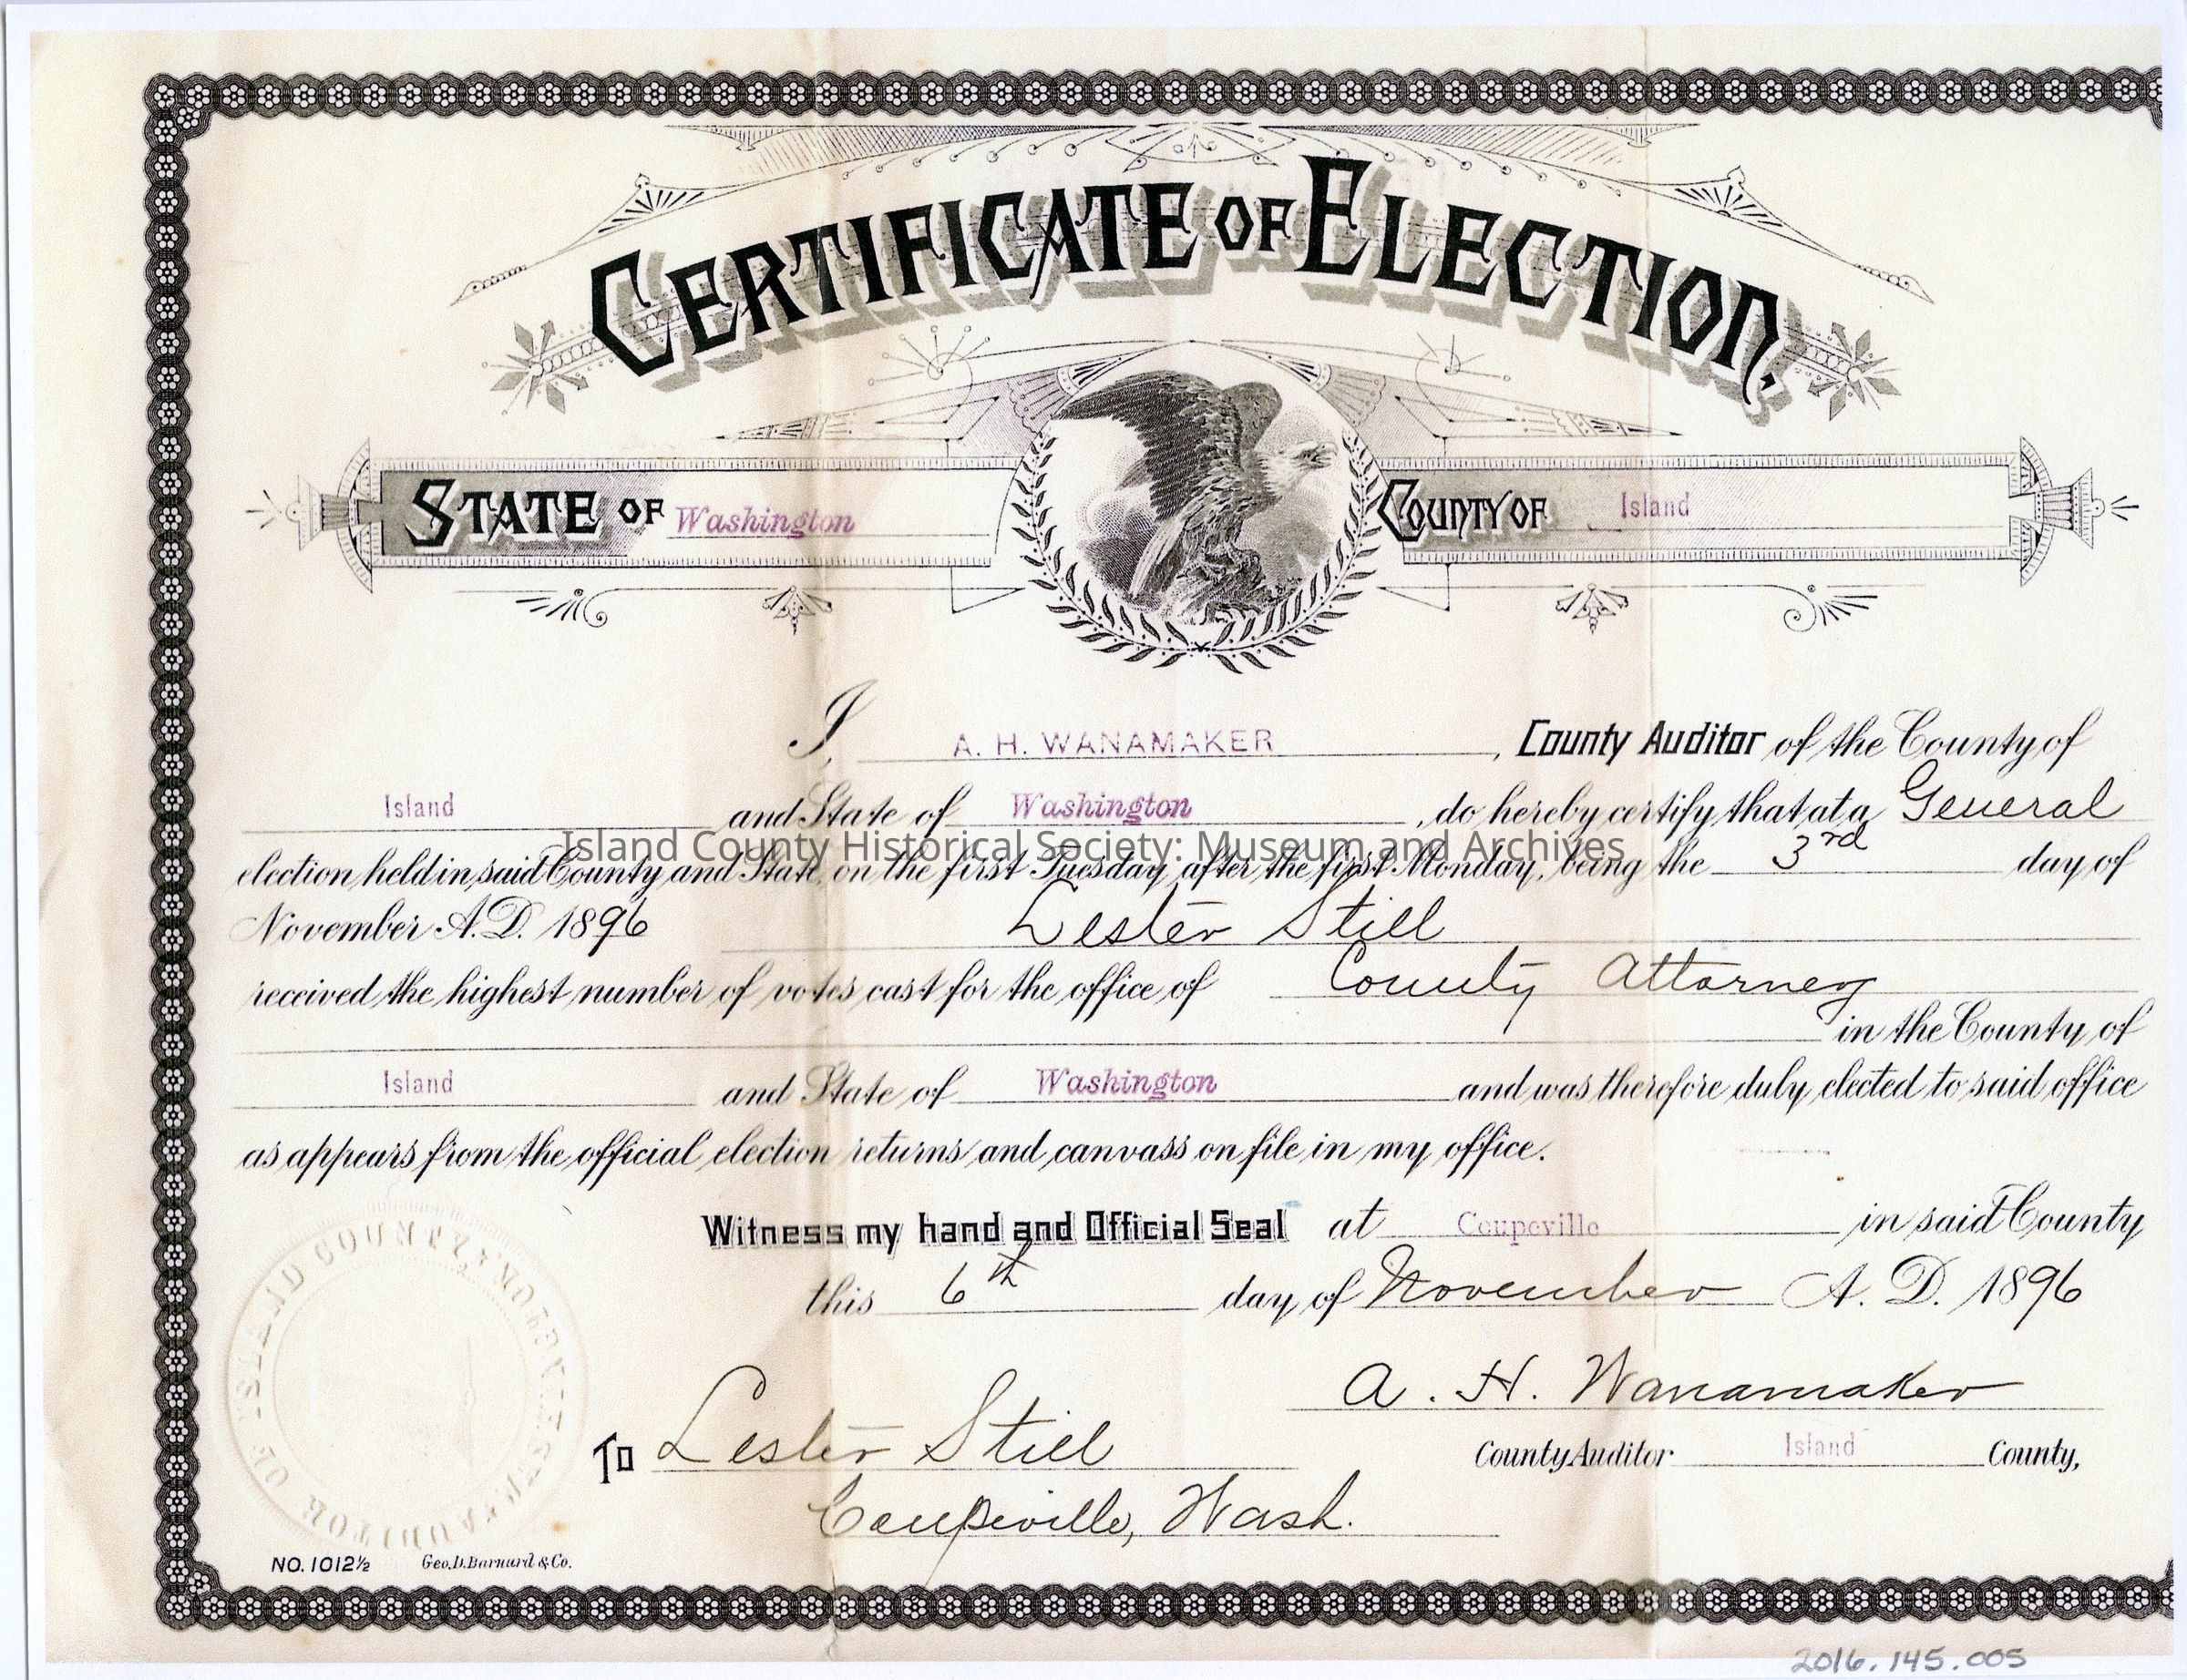 CERTIFICATE OF ELECTION.
STATE OF Washington COUNTY OF Island
I, A. H. WANAMAKER, County Auditor of the County of
Island and State of Washington, do hereby certify that at a General
Island County Historical Society: Museum and Archives
election held in said County and State, on the first Tuesday after the first Monday, being the 3rd day of
November A.D. 1896 Lester Still
received the highest number of votes cast for the office of County Attorney
in the County of
Island and State of Washington and was therefore duly elected to said office
as appears from the official election returns and canvass on file in my office.
Witness my hand and Official Seal at Coupeville in said County
this 6th day of November A. D. 1896
A. H. Wanamaker
To Lester Still County Auditor Island County,
Coupeville, Wash.
AUDITOR OF ISLAND COUNTY
NO. 1012½ Geo. D. Barnard & Co.
2016.145.005